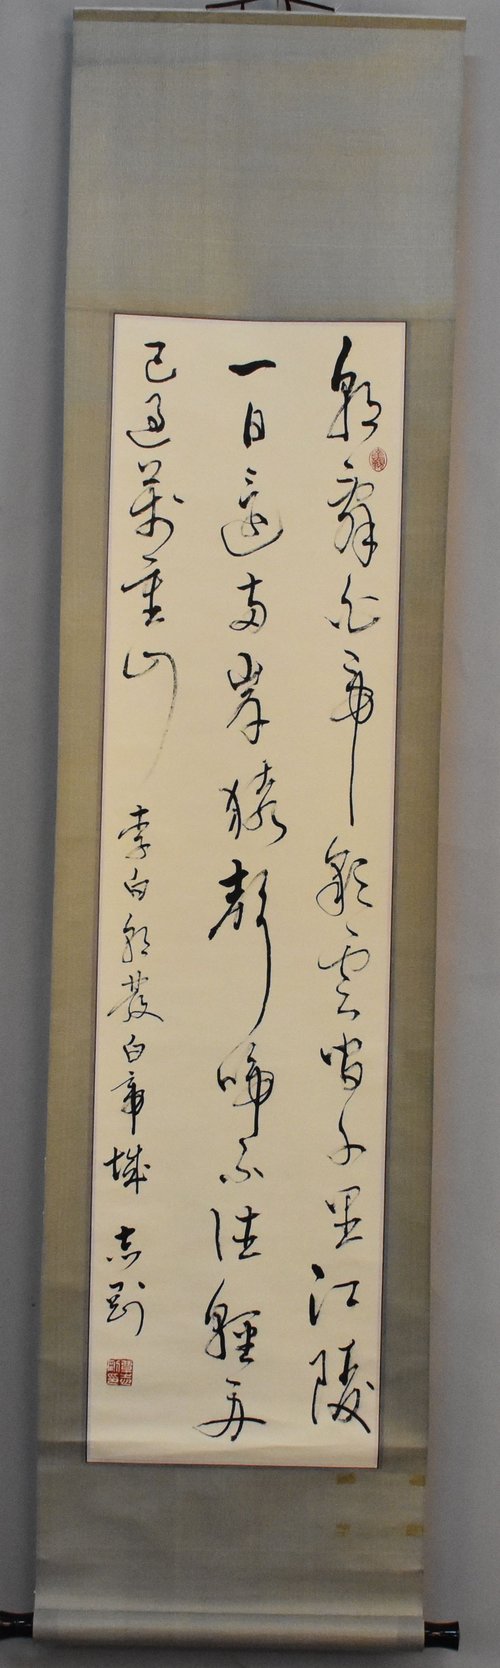 朝辭白帝彩雲間千里江陵
一日還兩岸猿聲啼不住輕舟
已過萬重山
李白朝發白帝城 志剛